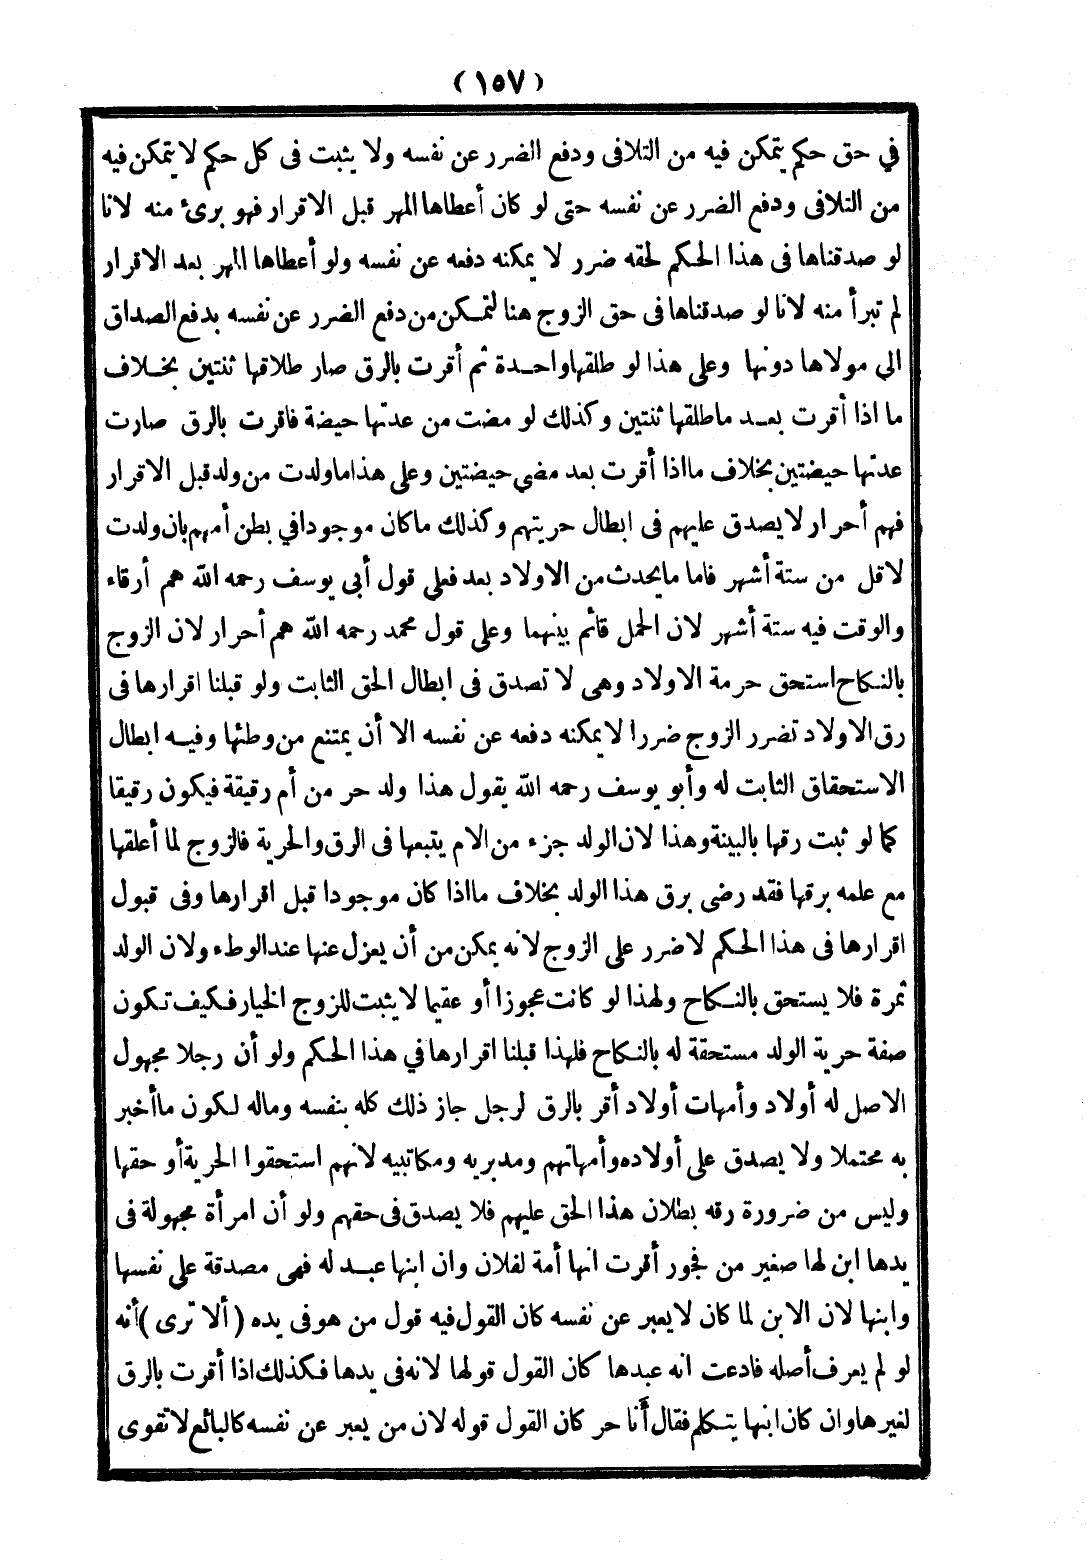 (١٥٧)
في حق حكم يتمكن فيه من التلافى ودفع الضرر عن نفسه ولا يثبت فى كل حكم لا يتمكن فيه
من التلافى ودفع الضرر عن نفسه حتى لو كان أعطاها المهر قبل الاقرار فهو برىء منه لانا
لو صدقناها فى هذا الحكم لحقه ضرر لا يمكنه دفعه عن نفسه ولو أعطاها المهر بعد الاقرار
لم تبرأ منه لانا لو صدقناها فى حق الزوج هنا لتمكن من دفع الضرر عن نفسه بدفع الصداق
الي مولاها دونها وعلى هذا لو طلقها واحدة ثم أقرت بالرق صار طلاقها ثنتين بخلاف
ما اذا أقرت بعد ما طلقها ثنتين وكذلك لو مضت من عدتها حيضة فاقرت بالرق صارت
عدتها حيضتين بخلاف ما اذا أقرت بعد مضي حيضتين وعلى هذا ما ولدت من ولد قبل الاقرار
فهم أحرار لا يصدق عليهم فى ابطال حريتهم وكذلك ما كان موجودا في بطن أمهم بان ولدت
لاقل من ستة أشهر فاما ما يحدث من الاولاد بعد فعلى قول أبى يوسف رحمه الله هم أرقاء
والوقت فيه ستة أشهر لان الحمل قائم بينهما وعلى قول محمد رحمه الله هم أحرار لان الزوج
بالنكاح استحق حرمة الاولاد وهى لا تصدق فى ابطال الحق الثابت ولو قبلنا اقرارها فى
رق الاولاد تضرر الزوج ضررا لا يمكنه دفعه عن نفسه الا أن يمتنع من وطئها وفيه ابطال
الاستحقاق الثابت له وأبو يوسف رحمه الله يقول هذا ولد حر من أم رقيقة فيكون رقيقا
كما لو ثبت رقها بالبينة وهذا لان الولد جزء من الام يتبعها فى الرق والحرية فالزوج لما أعلقها
مع علمه برقها فقد رضى برق هذا الولد بخلاف ما اذا كان موجودا قبل اقرارها وفى قبول
اقرارها فى هذا الحكم لا ضرر على الزوج لانه يمكن من أن يعزل عنها عند الوطء ولان الولد
ثمرة فلا يستحق بالنكاح ولهذا لو كانت عجوزا أو عقيما لا يثبت للزوج الخيار فكيف تكون
صفة حرية الولد مستحقة له بالنكاح فلهذا قبلنا اقرارها في هذا الحكم ولو أن رجلا مجهول
الاصل له أولاد وأمهات أولاد أقر بالرق لرجل جاز ذلك كله بنفسه وماله لكون ما أخبر
به محتملا ولا يصدق على أولاده وأمهاتهم ومدبريه ومكاتبيه لانهم استحقوا الحرية أو حقها
وليس من ضرورة رقه بطلان هذا الحق عليهم فلا يصدق فى حقهم ولو أن امرأة مجهولة فى
يدها ابن لها صغير من فجور أقرت انها أمة لفلان وان ابنها عبد له فهى مصدقة على نفسها
وابنها لان الابن لما كان لا يعبر عن نفسه كان القول فيه قول من هو فى يده ( ألا ترى ) أنه
لو لم يعرف أصله فادعت انه عبدها كان القول قولها لانه فى يدها فكذلك اذا أقرت بالرق
لغيرها وان كان ابنها يتكلم فقال أنا حر كان القول قوله لان من يعبر عن نفسه كالبائع لا تقوى